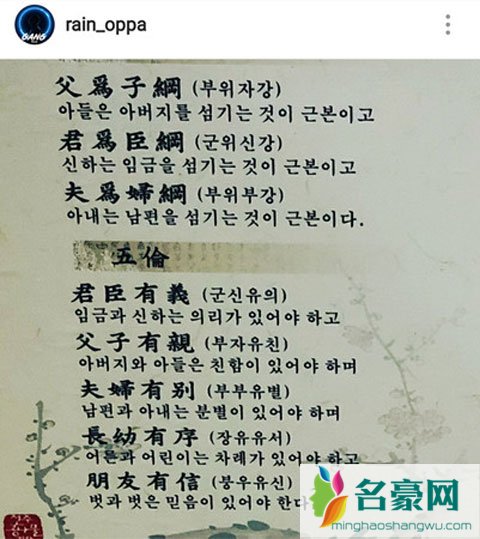 GANG
rain_oppa
父爲子綱 (부위자강)
아들은 아버지를 섬기는 것이 근본이고
君爲臣綱 (군위신강)
신하는 임금을 섬기는 것이 근본이고
夫爲婦綱 (부위부강)
아내는 남편을 섬기는 것이 근본이다.
五倫
君臣有義 (군신유의)
임금과 신하는 의리가 있어야 하고
父子有親 (부자유친)
아버지와 아들은 친함이 있어야 하며
夫婦有別 (부부유별)
남편과 아내는 분별이 있어야 하며
長幼有序 (장유유서)
어른과 어린이는 차례가 있어야 하고
朋友有信 (붕우유신)
벗과 벗은 믿음이 있어야 한다
名豪网
minghaoshangwu.com